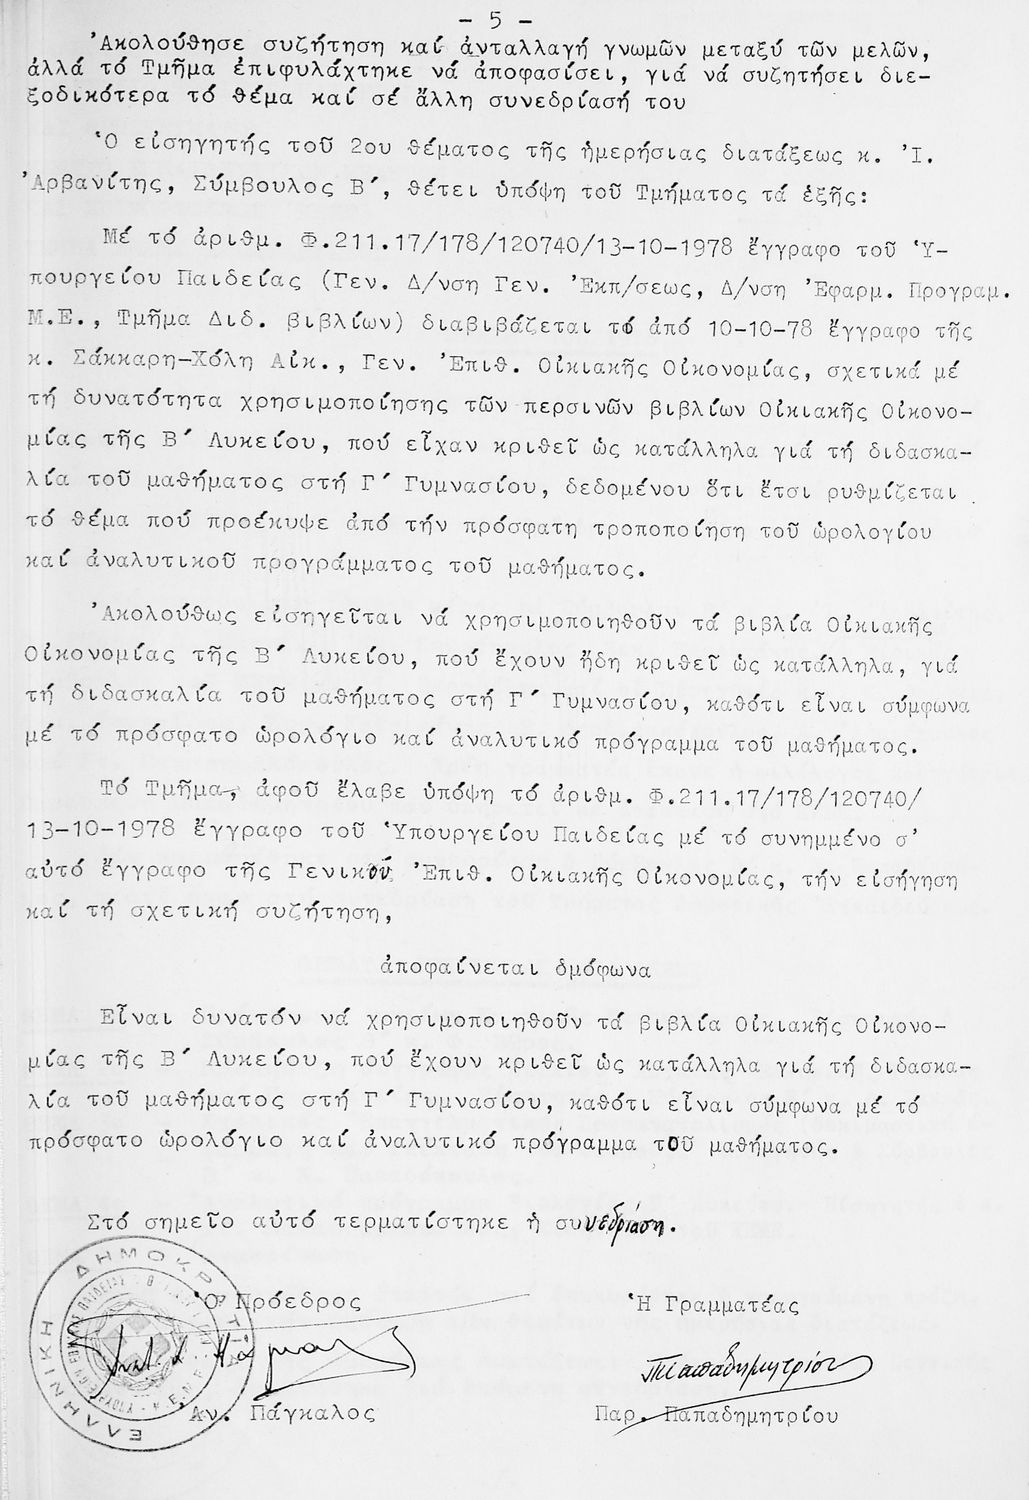 - 5 -
Ἀκολούθησε συζήτηση καί ἀνταλλαγή γνωμῶν μεταξύ τῶν μελῶν,
ἀλλά τό Τμῆμα ἐπιφυλάχτηκε νά ἀποφασίσει, γιά νά συζητήσει διε-
ξοδικότερα τό θέμα καί σέ ἄλλη συνεδρίασή του
Ὁ εἰσηγητής τοῦ 2ου θέματος τῆς ἡμερήσιας διατάξεως κ. Ἰ.
Ἀρβανίτης, Σύμβουλος Β´, θέτει ὑπόψη τοῦ Τμήματος τά ἑξῆς:
Μέ τό ἀριθμ. Φ.211.17/178/120740/13-10-1978 ἔγγραφο τοῦ Ὑ-
πουργείου Παιδείας (Γεν. Δ/νση Γεν. Ἐκπ/σεως, Δ/νση Ἐφαρμ. Προγραμ.
Μ.Ε., Τμῆμα Διδ. βιβλίων) διαβιβάζεται τό ἀπό 10-10-78 ἔγγραφο τῆς
κ. Σάκκαρη-Χόλη Αἰκ., Γεν. Ἐπιθ. Οἰκιακῆς Οἰκονομίας, σχετικά μέ
τή δυνατότητα χρησιμοποίησης τῶν περσινῶν βιβλίων Οἰκιακῆς Οἰκονο-
μίας τῆς Β´ Λυκείου, πού εἶχαν κριθεῖ ὡς κατάλληλα γιά τή διδασκα-
λία τοῦ μαθήματος στή Γ´ Γυμνασίου, δεδομένου ὅτι ἔτσι ρυθμίζεται
τό θέμα πού προέκυψε ἀπό τήν πρόσφατη τροποποίηση τοῦ ὡρολογίου
καί ἀναλυτικοῦ προγράμματος τοῦ μαθήματος.
Ἀκολούθως εἰσηγεῖται νά χρησιμοποιηθοῦν τά βιβλία Οἰκιακῆς
Οἰκονομίας τῆς Β´ Λυκείου, πού ἔχουν ἤδη κριθεῖ ὡς κατάλληλα, γιά
τή διδασκαλία τοῦ μαθήματος στή Γ´ Γυμνασίου, καθότι εἶναι σύμφωνα
μέ τό πρόσφατο ὡρολόγιο καί ἀναλυτικό πρόγραμμα τοῦ μαθήματος.
Τό Τμῆμα, ἀφοῦ ἔλαβε ὑπόψη τό ἀριθμ. Φ.211.17/178/120740/
13-10-1978 ἔγγραφο τοῦ Ὑπουργείου Παιδείας μέ τό συνημμένο σ'
αὐτό ἔγγραφο τῆς Γενικοῦ Ἐπιθ. Οἰκιακῆς Οἰκονομίας, τήν εἰσήγηση
καί τή σχετική συζήτηση,
ἀποφαίνεται ὁμόφωνα
Εἶναι δυνατόν νά χρησιμοποιηθοῦν τά βιβλία Οἰκιακῆς Οἰκονο-
μίας τῆς Β´ Λυκείου, πού ἔχουν κριθεῖ ὡς κατάλληλα γιά τή διδασκα-
λία τοῦ μαθήματος στή Γ´ Γυμνασίου, καθότι εἶναι σύμφωνα μέ τό
πρόσφατο ὡρολόγιο καί ἀναλυτικό πρόγραμμα τοῦ μαθήματος.
Στό σημεῖο αὐτό τερματίστηκε ἡ συνεδρίαση.
ΕΛΛΗΝΙΚΗ ΔΗΜΟΚΡΑΤΙΑ
Ὁ Πρόεδρος
Ἡ Γραμματέας
Παπαδημητρίου
Αν. Πάγκαλος
Παρ. Παπαδημητρίου